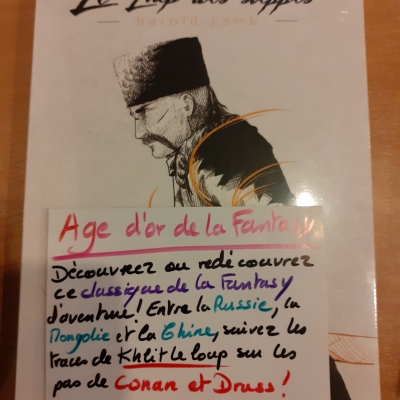 Le Loup des steppes
Age d'or de la Fantasy
Découvrez ou redécouvrez
ce classique de la Fantasy
d'aventure! Entre la Russie, la
Mongolie et la Chine, suivez les
traces de Khlit le loup sur les
pas de Conan et Druss!